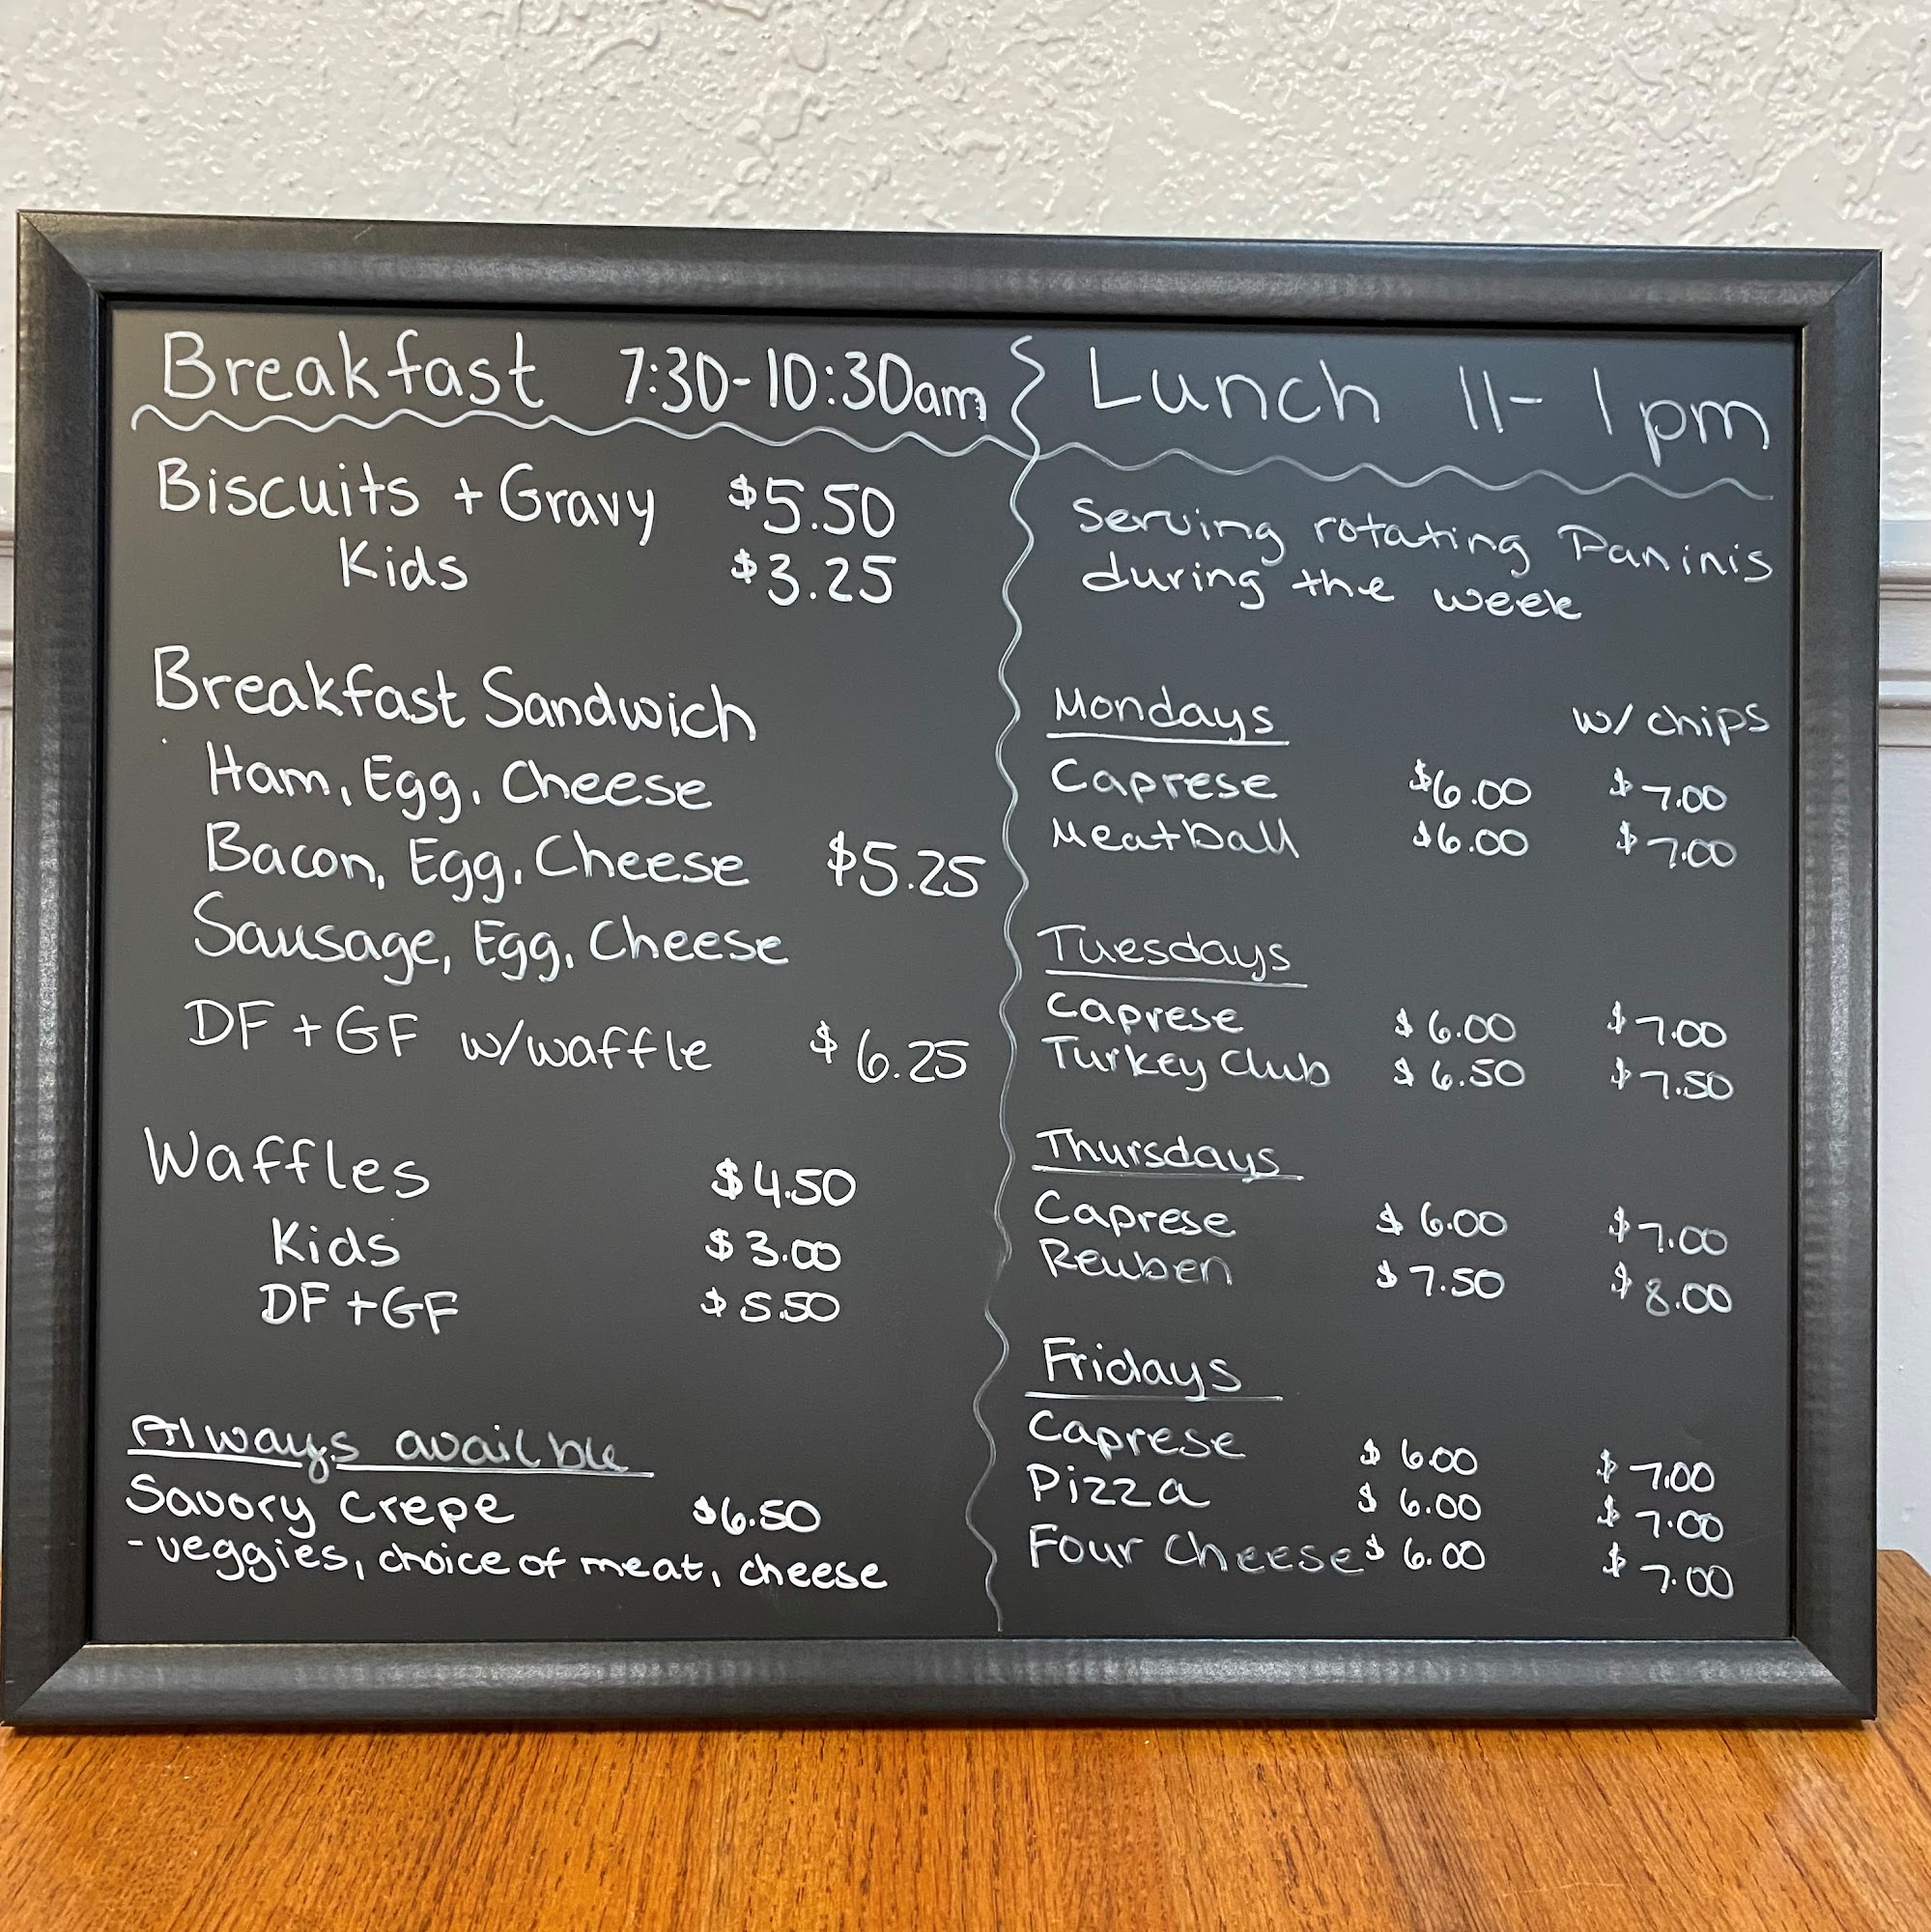 Breakfast 7:30-10:30am
Biscuits + Gravy $5.50
Kids $3.25
Breakfast Sandwich
Ham, Egg, Cheese
Bacon, Egg, Cheese $5.25
Sausage, Egg, Cheese
DF + GF w/waffle $6.25
Waffles $4.50
Kids $3.00
DF + GF $5.50
Always availble
Savory Crepe $6.50
- veggies, choice of meat, cheese
Lunch 11-1pm
Serving rotating Paninis
during the week
Mondays w/ chips
Caprese $6.00 $7.00
Meatball $6.00 $7.00
Tuesdays
Caprese $6.00 $7.00
Turkey Club $6.50 $7.50
Thursdays
Caprese $6.00 $7.00
Reuben $7.50 $8.00
Fridays
Caprese $6.00 $7.00
Pizza $6.00 $7.00
Four Cheese $6.00 $7.00